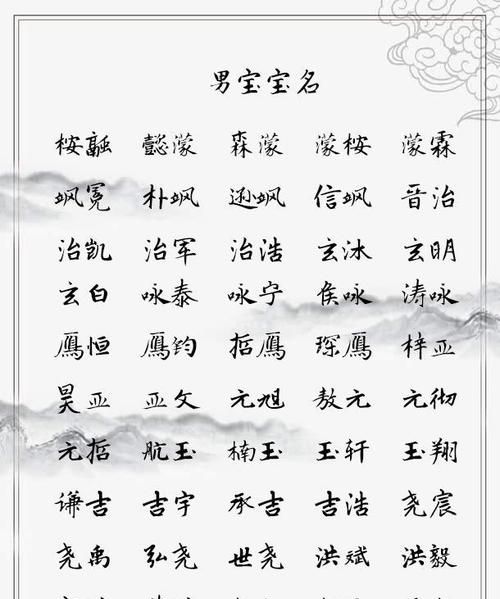 男宝宝名
桉融 懿濛 森濛 濛桉 濛霖
飒冕 朴飒 逊飒 信飒 晋治
治凯 治军 治浩 玄冰 玄明
玄白 咏泰 咏宁 侯咏 涛咏
鹰恒 鹰钧 哲鹰 琛鹰 梓亚
昊亚 亚文 元旭 敖元 元彻
元哲 航玉 楠玉 玉轩 玉翔
谦吉 吉宇 承吉 吉浩 尧宸
尧禹 弘尧 世尧 洪斌 洪毅